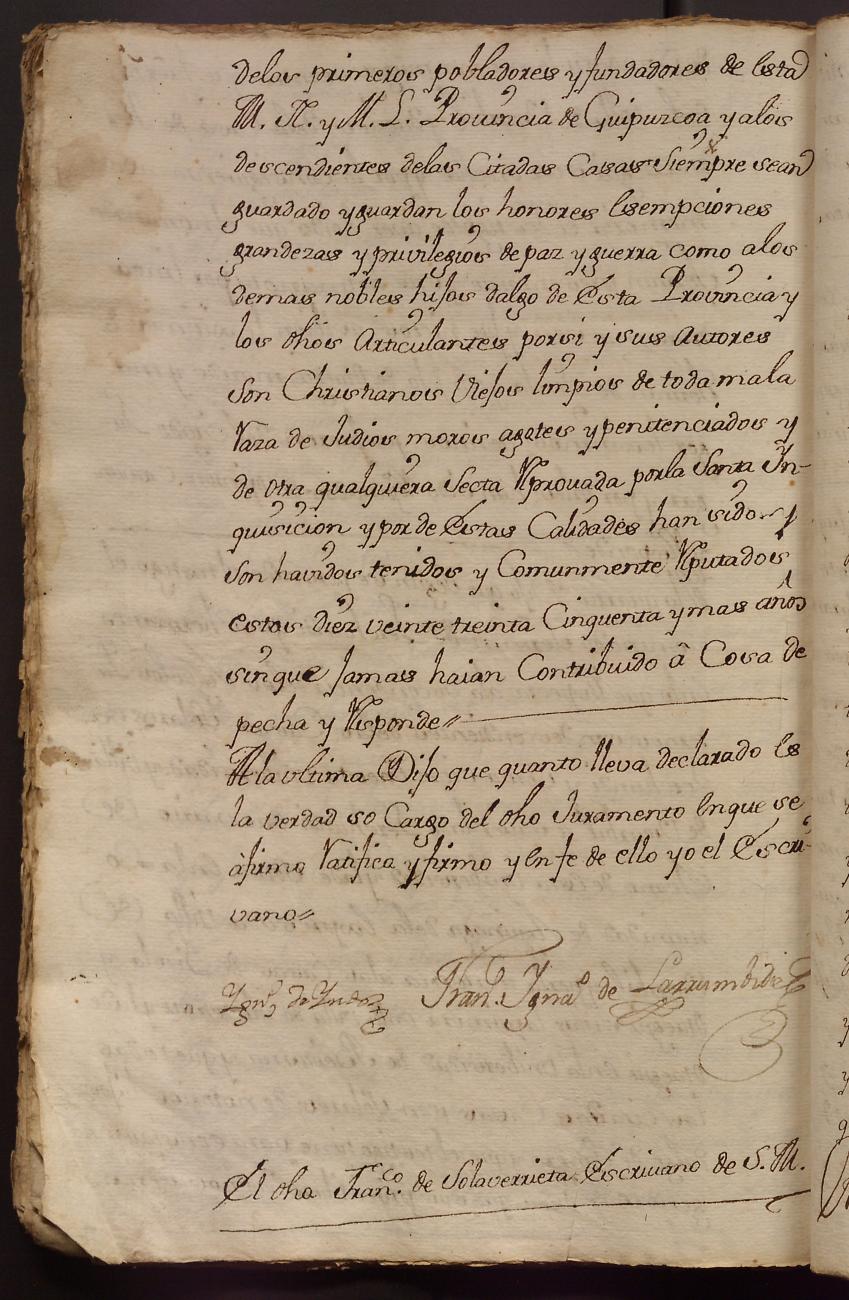 delos primeros pobladores y fundadores de Esta
M. N. y M. L. Provincia de Guipuzcoa y alos
descendientes delas Citadas Casas Siempre sean
guardado y guardan los honores Esempciones
grandezas y privilegios de paz y guerra como alos
demas nobles hijos dalgo de Esta Provincia y
los dhos Articulantes porsi y sus Autores
son Christianos Viejos limpios de toda mala
Raza de Judios moros agotes y penitenciados y
de otra qualquiera Secta Reprouada porla Santa In-
quisicion y por de Estas Calidades han sido y
son havidos tenidos y Comunmente Reputados
estos diez veinte treinta Cinquenta y mas años
sinque Jamas haian Contribuido â Cosa de
pecha y Responde //
A la vltima Dijo que quanto lleva declarado Es
la verdad so Cargo del dho Juramento Enque se
afirma Ratifica y firmo y En fe de ello yo el Escri-
vano //
Fran.co Ygna.o de Larrumbide
El dho Fran.co de Solaverrieta Escrivano de S. M.